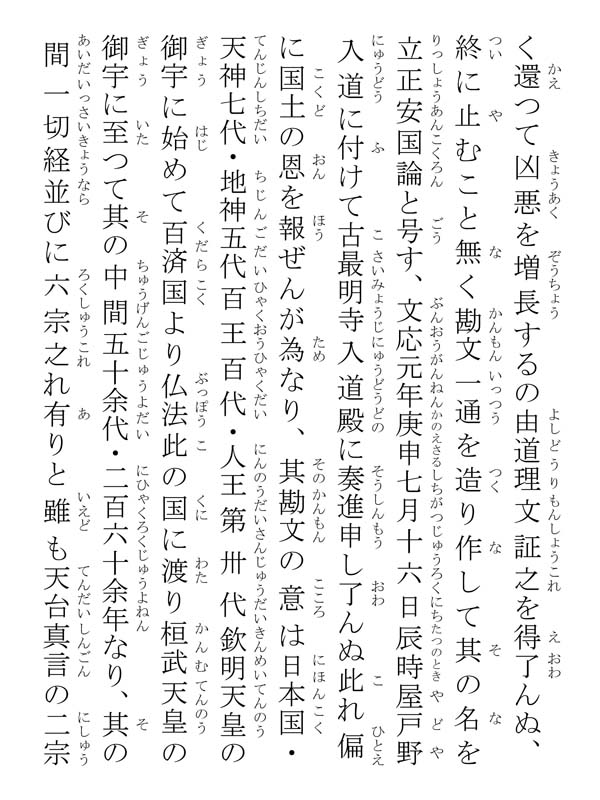 く還つて凶悪を増長するの由道理文証之を得了んぬ、
かえ きょうあく ぞうちょう よしどうりもんしょうこれ え おわ
終に止むこと無く勘文一通を造り作して其の名を
つい や な かんもんいっつう つく な そ な
立正安国論と号す、文応元年庚申七月十六日辰時屋戸野
りっしょうあんこくろん ごう ぶんおうがんねんかのえさるしちがつじゅうろくにちたつのとき やどや
入道に付けて古最明寺入道殿に奏進申し了んぬ此れ偏
にゅうどう ふ こさいみょうじにゅうどうどの そうしんもう おわ こ ひとえ
に国土の恩を報ぜんが為なり、其勘文の意は日本国・
こくど おん ほう ため そのかんもん こころ にほんこく
天神七代・地神五代百王百代・人王第卅代欽明天皇の
てんじんしちだい ちじんごだいひゃくおうひゃくだい にんのうだいさんじゅうだいきんめいてんのう
御宇に始めて百済国より仏法此の国に渡り桓武天皇の
ぎょう はじ くだらこく ぶっぽうこ くに わた かんむてんのう
御宇に至つて其の中間五十余代・二百六十余年なり、其の
ぎょう いた そ ちゅうげんごじゅうよだい にひゃくろくじゅうよねん そ
間一切経並びに六宗之れ有りと雖も天台真言の二宗
あいだいっさいきょうなら ろくしゅうこれ あ いえど てんだいしんごん にしゅう